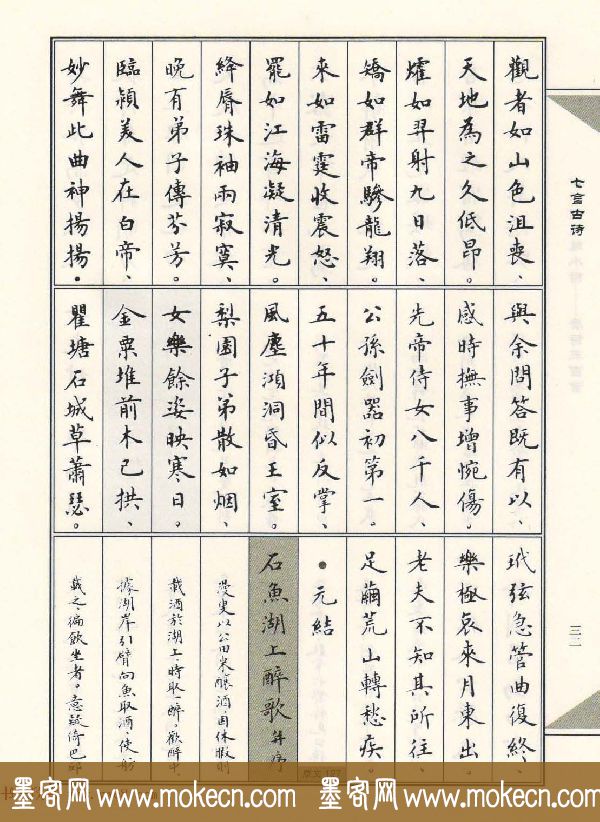 觀者如山色沮喪、
天地為之久低昂。
㸌如羿射九日落、
矯如群帝驂龍翔。
來如雷霆收震怒、
罷如江海凝清光。
絳脣珠袖兩寂寞、
晚有弟子傳芬芳。
臨潁美人在白帝、
妙舞此曲神揚揚。
與余問答既有以、
感時撫事增惋傷。
先帝侍女八千人、
公孫劍器初第一。
五十年間似反掌、
風塵澒洞昏王室。
梨園子弟散如烟、
女樂餘姿映寒日。
金粟堆前木已拱、
瞿塘石城草蕭瑟。
玳弦急管曲復終、
樂極哀來月東出。
老夫不知其所往、
足繭荒山轉愁疾。
●元結
石魚湖上醉歌 并序
漫叟以公田米釀酒、因休暇則
載酒於湖上、時取一醉。歡醉中、
據湖岸引臂向魚取酒、使舫
載之、徧飲坐者。意疑倚巴邱
七言古诗
三二
墨客网 www.mokecn.com 墨客网 www.mokecn.com